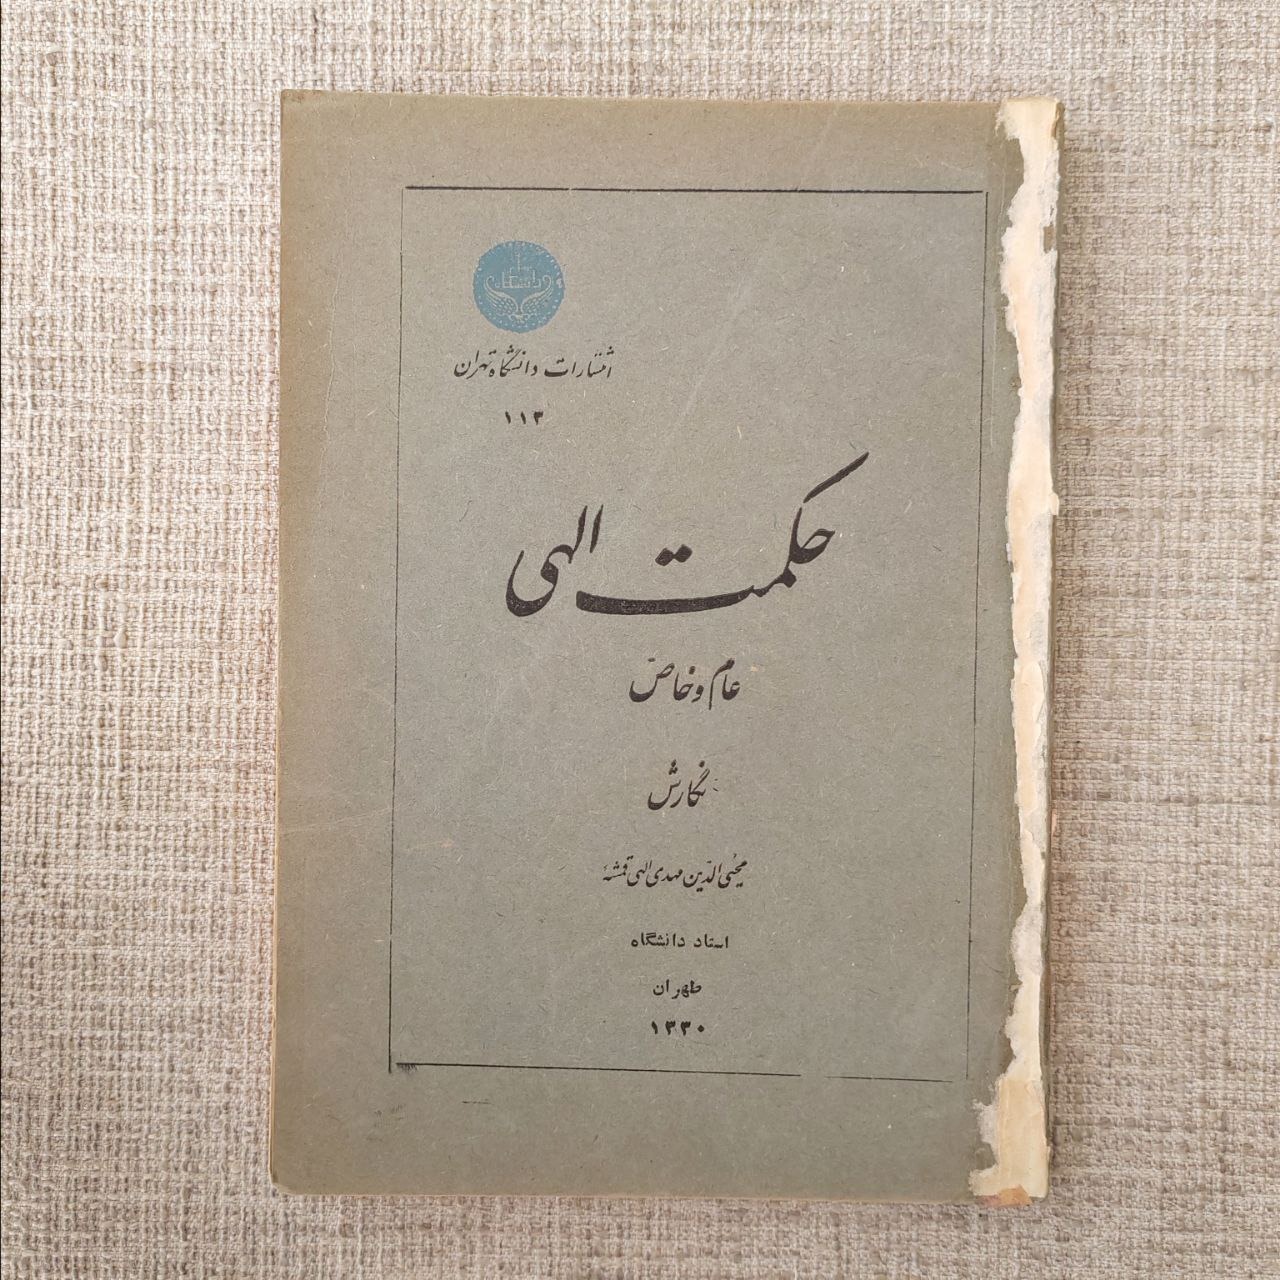 انتشارات دانشگاه تهران
۱۱۳
حکمت الهی
عام و خاصّ
نگارش
محیی الدّین مهدی الهی قمشهٔ
استاد دانشگاه
طهران
۱۳۳۰